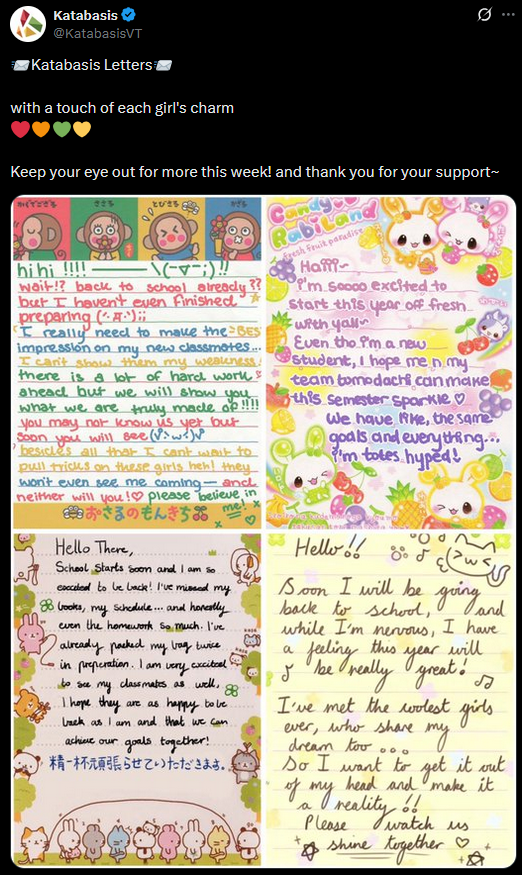 Katabasis
@KatabasisVT
📨Katabasis Letters📨
with a touch of each girl's charm
❤️🧡💚💛
Keep your eye out for more this week! and thank you for your support~
かざる
hihi !!!! ——— \(-▽-;)!!
wait!? back to school already??
but I haven't even finished
preparing (°-д-°);;
I really need to make the BEST
impression on my new classmates...
I can't show them my weakness
there is a lot of hard work
ahead but we will show you
what we are truly made of !!!!
you may not know us yet but
soon you will see
besides all that I can't wait to
pull tricks on these girls heh! they
won't even see me coming — and
neither will you! ♡ please believe in
me!
おさるのもんきち
Candy
RabiLand
fresh fruit paradise
Haiii~
I'm soooo excited to
start this year off fresh
with yall~
Even tho I'm a new
student, I hope me n my
team tomodachi can make
this semester sparkle ♡
We have like, the same
goals and everything...
I'm totes hyped!
Hello There,
School starts soon and I am so
excited to be back! I've missed my
books, my schedule... and honestly
even the homework so much. I've
already packed my bag twice
in preparation. I am very excited
to see my classmates as well,
I hope they are as happy to be
back as I am and that we can
achieve our goals together!
精一杯頑張らせていただきます。
Hello!!
Soon I will be going
back to school, and
while I'm nervous, I have
a feeling this year will
be really great!
I've met the coolest girls
ever, who share my
dream too ...
So I want to get it out
of my head and make it
a reality !!
Please watch us
shine together ♡